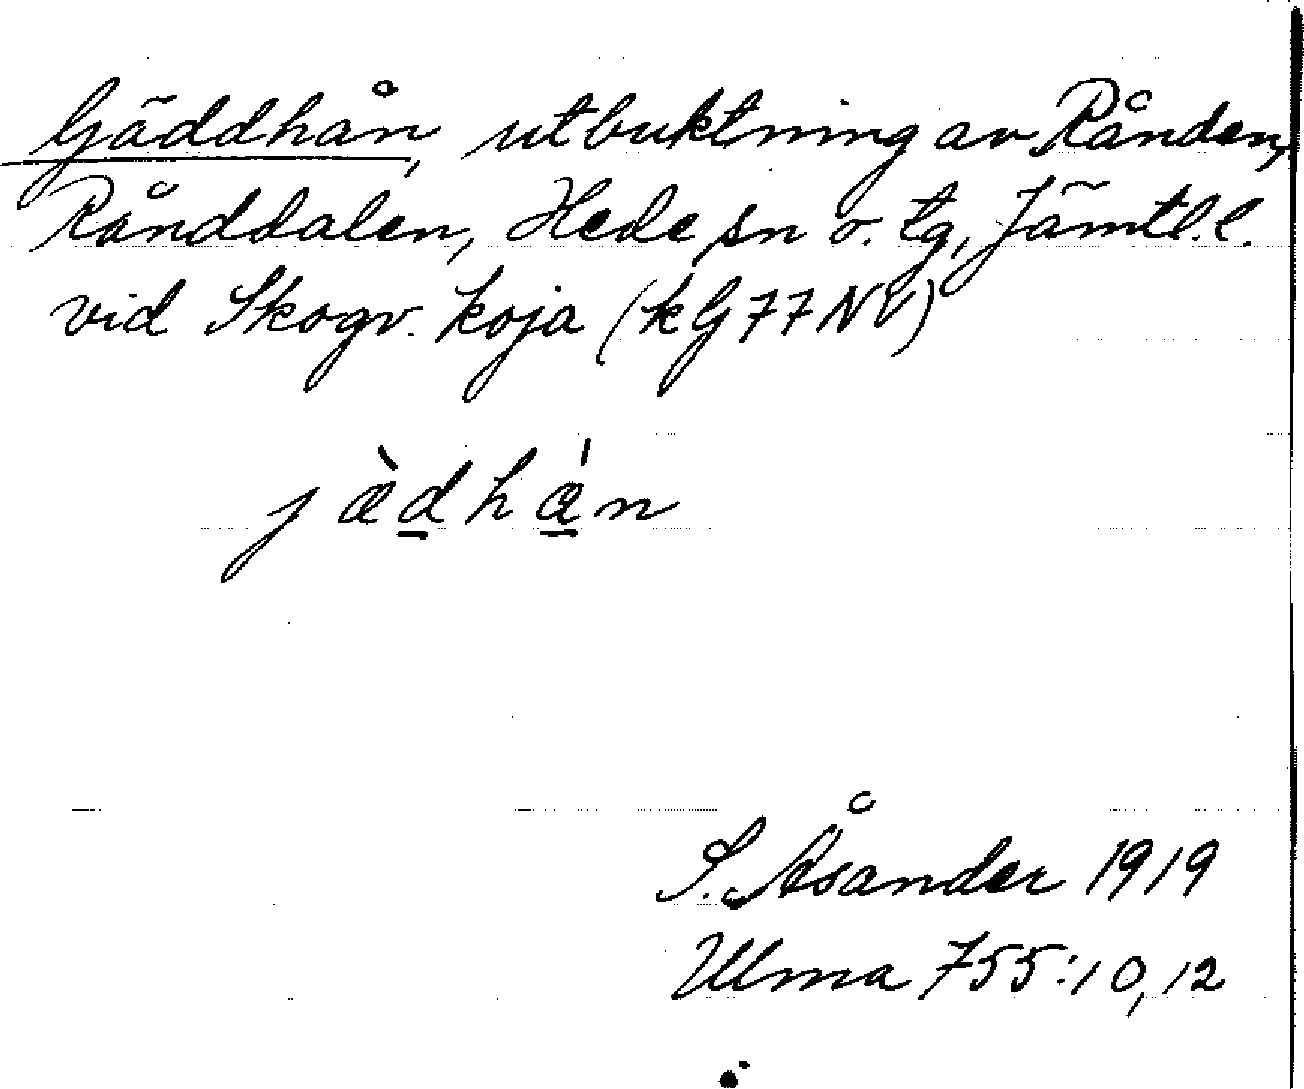 Gäddhån, utbuktning av Rånden,
Rånddalen, Hede sn o. tg, Jämtl.l.
vid Skogv. koja (kG77NV)
jæ̀d̲hǽ̲n
S. Åsander 1919
Ulma 755:10,12